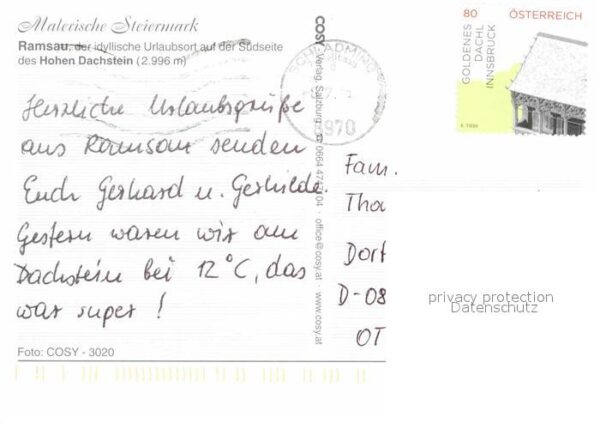 Malerische Steiermark
Ramsau, der idyllische Urlaubsort auf der Südseite
des Hohen Dachstein (2.996 m)
Herzliche Urlaubsgrüße
aus Ramsau senden
Euch Gerhard u. Gerhilde.
Gestern waren wir am
Dachstein bei 12°C, das
war super!
Foto: COSY - 3020
COSY Verlag, Salzburg · 0664 4 104 · office@cosy.at · www.cosy.at
SCHLADMING
8970
80 ÖSTERREICH
GOLDENES
DACHL
INNSBRUCK
Fam.
Tho
Dorf
D-08
OT
privacy protection
Datenschutz